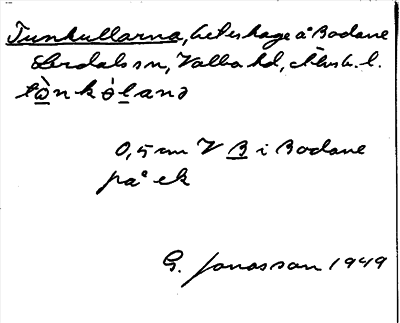 Tunkullarna, beteshage å Bodane
Lerdals sn, Valbo hd, Älvsb. l.
tὼnkó̀lanə
0,5 cm V B i Bodane
på ek
G. Jonasson 1949